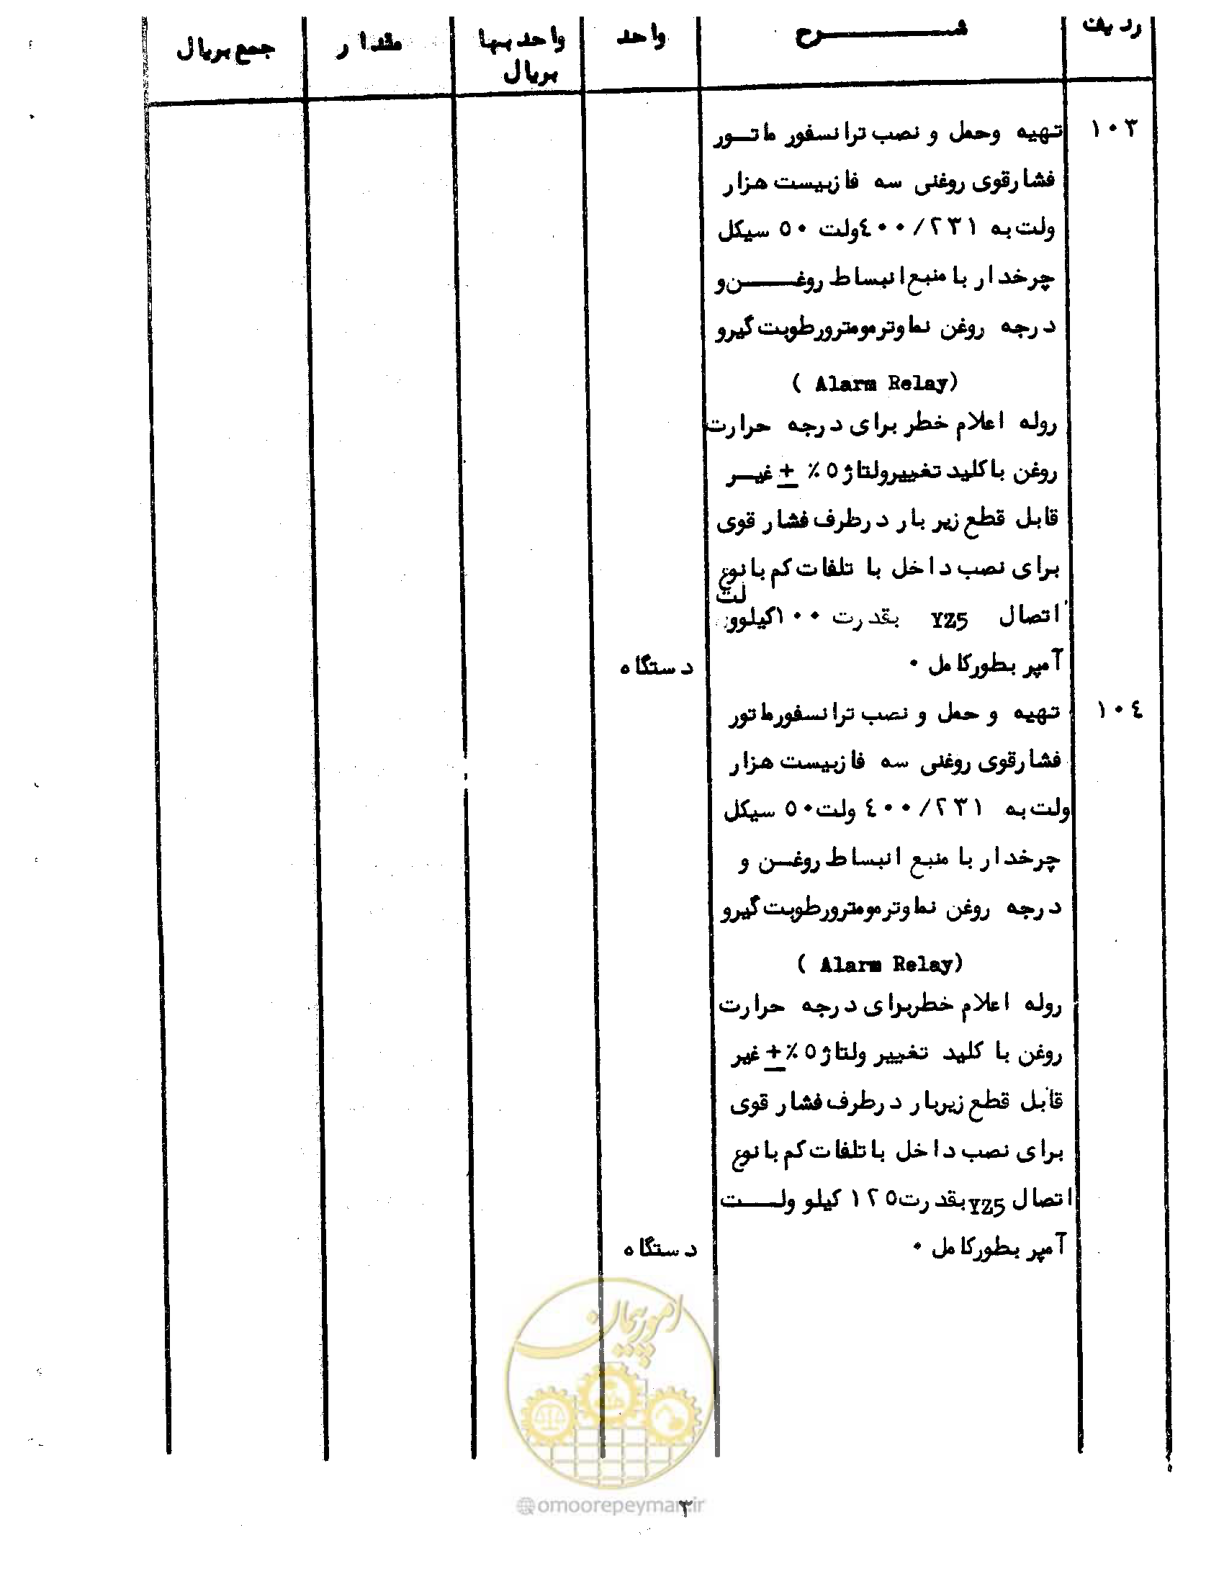 ردیف شــــرح واحد واحد بها مقدار جمع بریال
بریال
۱۰۳ تهیه وحمل و نصب ترانسفورماتـور
فشارقوی روغنی سه فازبیست هزار
ولت به ۴۰۰/۲۳۱ولت ۵۰ سیکل
چرخدار با منبع انبساط روغــــن و
درجه روغن نما وترمومترورطوبت گیرو
( Alarm Relay)
روله اعلام خطر برای درجه حرارت
روغن باکلید تغییرولتاژ ۵٪ ± غیــر
قابل قطع زیر بار درطرف فشار قوی
برای نصب داخل با تلفات کم با نوع
اتصال YZ5 بقدرت ۱۰۰کیلوولت
آمپر بطورکامل ۰ دستگاه
۱۰۴ تهیه و حمل و نصب ترانسفورماتور
فشارقوی روغنی سه فازبیست هزار
ولت به ۴۰۰/۲۳۱ ولت۵۰ سیکل
چرخدار با منبع انبساط روغـن و
درجه روغن نما وترمومترورطوبت گیرو
( Alarm Relay)
روله اعلام خطربرای درجه حرارت
روغن با کلید تغییر ولتاژ ۵٪± غیر
قابل قطع زیربار درطرف فشار قوی
برای نصب داخل با تلفات کم با نوع
اتصال YZ5بقدرت۱۲۵ کیلو ولــــت
آمپر بطورکامل ۰ دستگاه
امور پیمان
@omoorepeyman.ir
۳